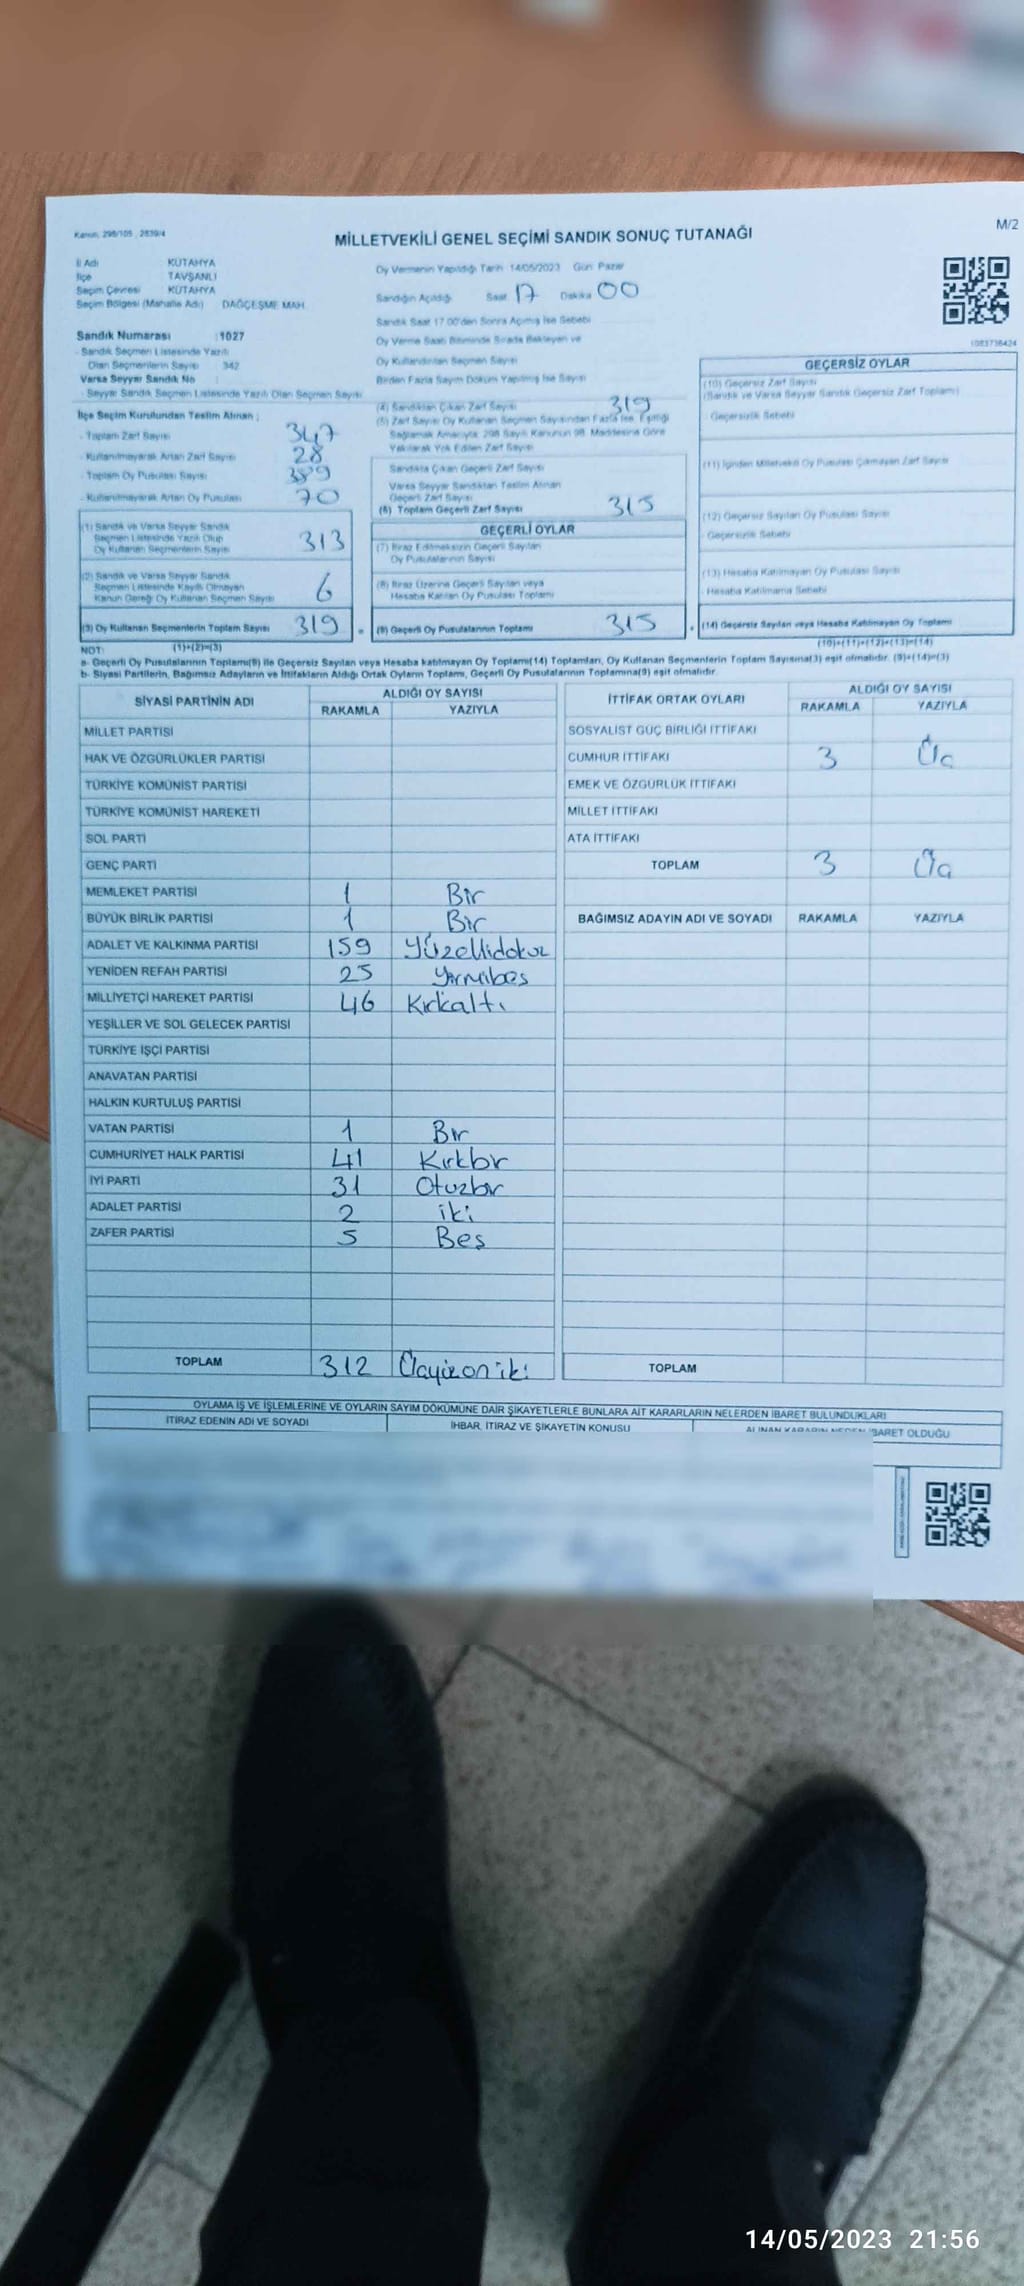 Kanun: 298/105 , 2839/4
M/2
MİLLETVEKİLİ GENEL SEÇİMİ SANDIK SONUÇ TUTANAĞI
İl Adı KÜTAHYA
İlçe TAVŞANLI
Seçim Çevresi KÜTAHYA
Seçim Bölgesi (Mahalle Adı) DAĞÇEŞME MAH.
Oy Vermenin Yapıldığı Tarih 14/05/2023 Gün Pazar
Sandığın Açıldığı Saat 17 Dakika 00
Sandık Saat 17:00'den Sonra Açılmış İse Sebebi
Oy Verme Saati Bitiminde Sırada Bekleyen ve
Oy Kullandırılan Seçmen Sayısı
Birden Fazla Sayım Döküm Yapılmış İse Sayısı
Sandık Numarası : 1027
- Sandık Seçmen Listesinde Yazılı
Olan Seçmenlerin Sayısı 342
Varsa Seyyar Sandık No
- Seyyar Sandık Seçmen Listesinde Yazılı Olan Seçmen Sayısı
İlçe Seçim Kurulundan Teslim Alınan ;
- Toplam Zarf Sayısı 347
- Kullanılmayarak Artan Zarf Sayısı 28
- Toplam Oy Pusulası Sayısı 389
- Kullanılmayarak Artan Oy Pusulası 70
(1) Sandık ve Varsa Seyyar Sandık
Seçmen Listesinde Yazılı Olup
Oy Kullanan Seçmenlerin Sayısı 313
(2) Sandık ve Varsa Seyyar Sandık
Seçmen Listesinde Kayıtlı Olmayan
Kanun Gereği Oy Kullanan Seçmen Sayısı 6
(3) Oy Kullanan Seçmenlerin Toplam Sayısı 319
(4) Sandıktan Çıkan Zarf Sayısı 319
(5) Zarf Sayısı Oy Kullanan Seçmen Sayısından Fazla İse, Eşitliği
Sağlamak Amacıyla, 298 Sayılı Kanunun 98. Maddesine Göre
Yakılarak Yok Edilen Zarf Sayısı
Sandıkta Çıkan Geçerli Zarf Sayısı
Varsa Seyyar Sandıktan Teslim Alınan
Geçerli Zarf Sayısı
(6) Toplam Geçerli Zarf Sayısı 315
GEÇERLİ OYLAR
(7) İtiraz Edilmeksizin Geçerli Sayılan
Oy Pusulalarının Sayısı
(8) İtiraz Üzerine Geçerli Sayılan veya
Hesaba Katılan Oy Pusulası Toplamı
(9) Geçerli Oy Pusulalarının Toplamı 315
1083736424
GEÇERSİZ OYLAR
(10) Geçersiz Zarf Sayısı
(Sandık ve Varsa Seyyar Sandık Geçersiz Zarf Toplamı)
- Geçersizlik Sebebi
(11) İçinden Milletvekili Oy Pusulası Çıkmayan Zarf Sayısı
(12) Geçersiz Sayılan Oy Pusulası Sayısı
- Geçersizlik Sebebi
(13) Hesaba Katılmayan Oy Pusulası Sayısı
- Hesaba Katılmama Sebebi
(14) Geçersiz Sayılan veya Hesaba Katılmayan Oy Toplamı
NOT: (1)+(2)=(3) (10)+(11)+(12)+(13)=(14)
a- Geçerli Oy Pusulalarının Toplamı(9) ile Geçersiz Sayılan veya Hesaba katılmayan Oy Toplamı(14) Toplamları, Oy Kullanan Seçmenlerin Toplam Sayısına(3) eşit olmalıdır. (9)+(14)=(3)
b- Siyasi Partilerin, Bağımsız Adayların ve İttifakların Aldığı Ortak Oyların Toplamı, Geçerli Oy Pusulalarının Toplamına(9) eşit olmalıdır.
SİYASİ PARTİNİN ADI ALDIĞI OY SAYISI
RAKAMLA YAZIYLA
MİLLET PARTİSİ
HAK VE ÖZGÜRLÜKLER PARTİSİ
TÜRKİYE KOMÜNİST PARTİSİ
TÜRKİYE KOMÜNİST HAREKETİ
SOL PARTİ
GENÇ PARTİ
MEMLEKET PARTİSİ 1 Bir
BÜYÜK BİRLİK PARTİSİ 1 Bir
ADALET VE KALKINMA PARTİSİ 159 Yüzellidokuz
YENİDEN REFAH PARTİSİ 25 Yirmibeş
MİLLİYETÇİ HAREKET PARTİSİ 46 Kırkaltı
YEŞİLLER VE SOL GELECEK PARTİSİ
TÜRKİYE İŞÇİ PARTİSİ
ANAVATAN PARTİSİ
HALKIN KURTULUŞ PARTİSİ
VATAN PARTİSİ 1 Bir
CUMHURİYET HALK PARTİSİ 41 Kırkbir
İYİ PARTİ 31 Otuzbir
ADALET PARTİSİ 2 iki
ZAFER PARTİSİ 5 Beş
TOPLAM 312 Üçyüzoniki
İTTİFAK ORTAK OYLARI ALDIĞI OY SAYISI
RAKAMLA YAZIYLA
SOSYALİST GÜÇ BİRLİĞİ İTTİFAKI
CUMHUR İTTİFAKI 3 Üç
EMEK VE ÖZGÜRLÜK İTTİFAKI
MİLLET İTTİFAKI
ATA İTTİFAKI
TOPLAM 3 Üç
BAĞIMSIZ ADAYIN ADI VE SOYADI RAKAMLA YAZIYLA
TOPLAM
OYLAMA İŞ VE İŞLEMLERİNE VE OYLARIN SAYIM DÖKÜMÜNE DAİR ŞİKAYETLERLE BUNLARA AİT KARARLARIN NELERDEN İBARET BULUNDUKLARI
İTİRAZ EDENİN ADI VE SOYADI İHBAR, İTİRAZ VE ŞİKAYETİN KONUSU ALINAN KARARIN NEDEN İBARET OLDUĞU
14/05/2023 21:56